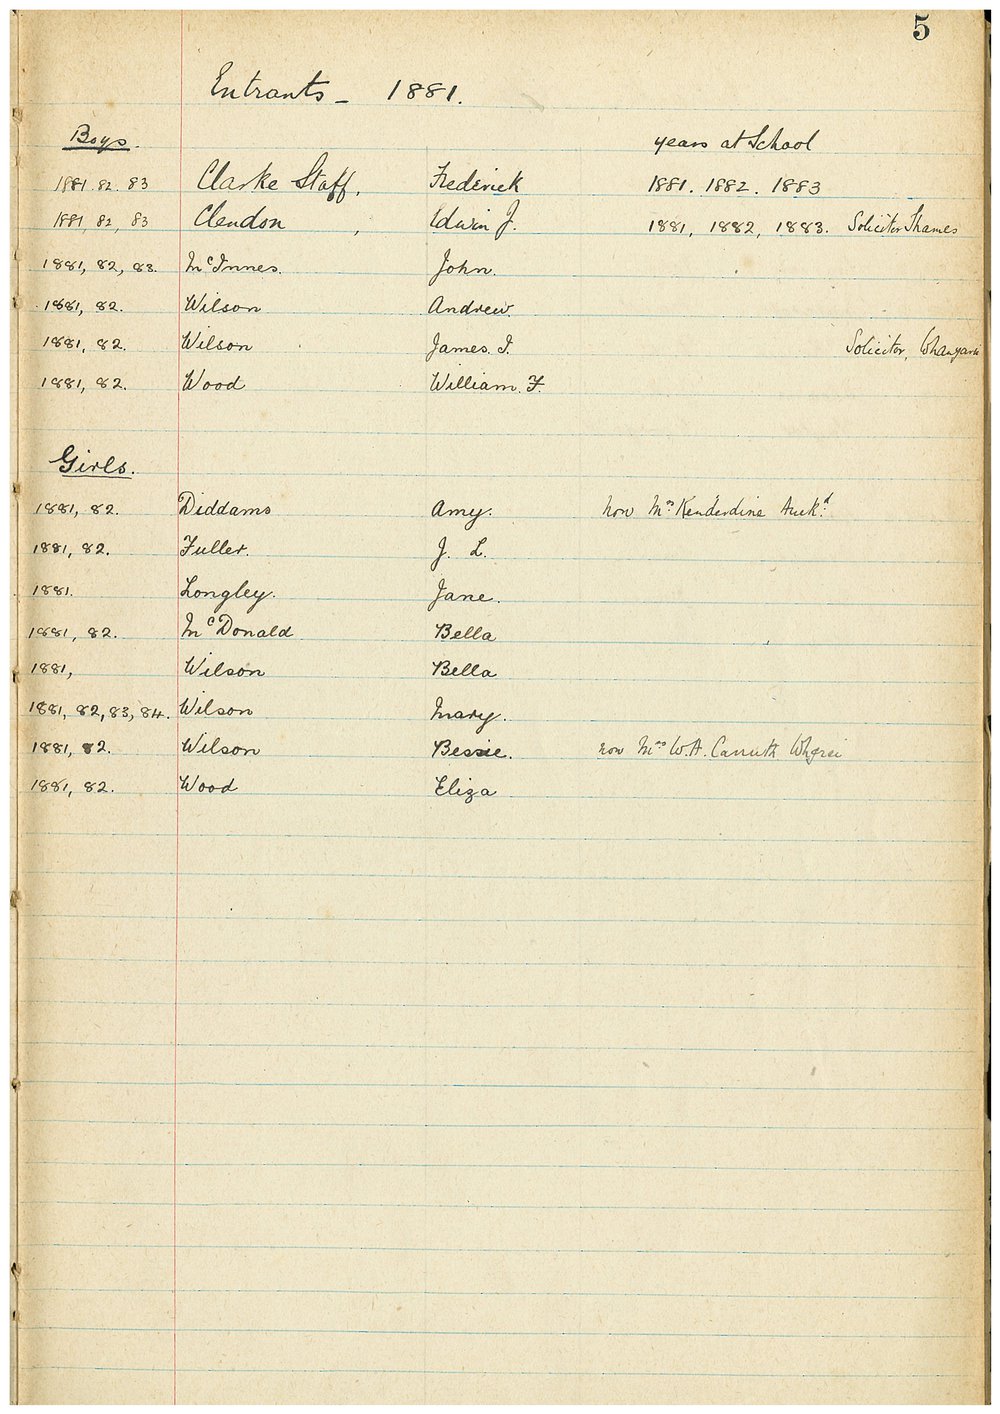 5
Entrants – 1881.
Boys. years at School
1881. 82. 83 Clarke Staff, Frederick 1881. 1882. 1883
1881, 82, 83 Clendon, Edwin J. 1881, 1882, 1883. Solicitor Thames
1881, 82, 83. McInnes. John.
1881, 82. Wilson Andrew.
1881, 82. Wilson James. I. Solicitor, Whangarei
1881, 82. Wood William. F.
Girls.
1881, 82. Diddams Amy. now Mrs. Kenderdine Auckd.
1881, 82. Fuller. J. L.
1881. Longley. Jane.
1881, 82. McDonald Bella
1881, Wilson Bella
1881, 82, 83, 84. Wilson Mary.
1881, 82. Wilson Bessie. now Mrs W. A. Carruth Whgrei
1881, 82. Wood Eliza